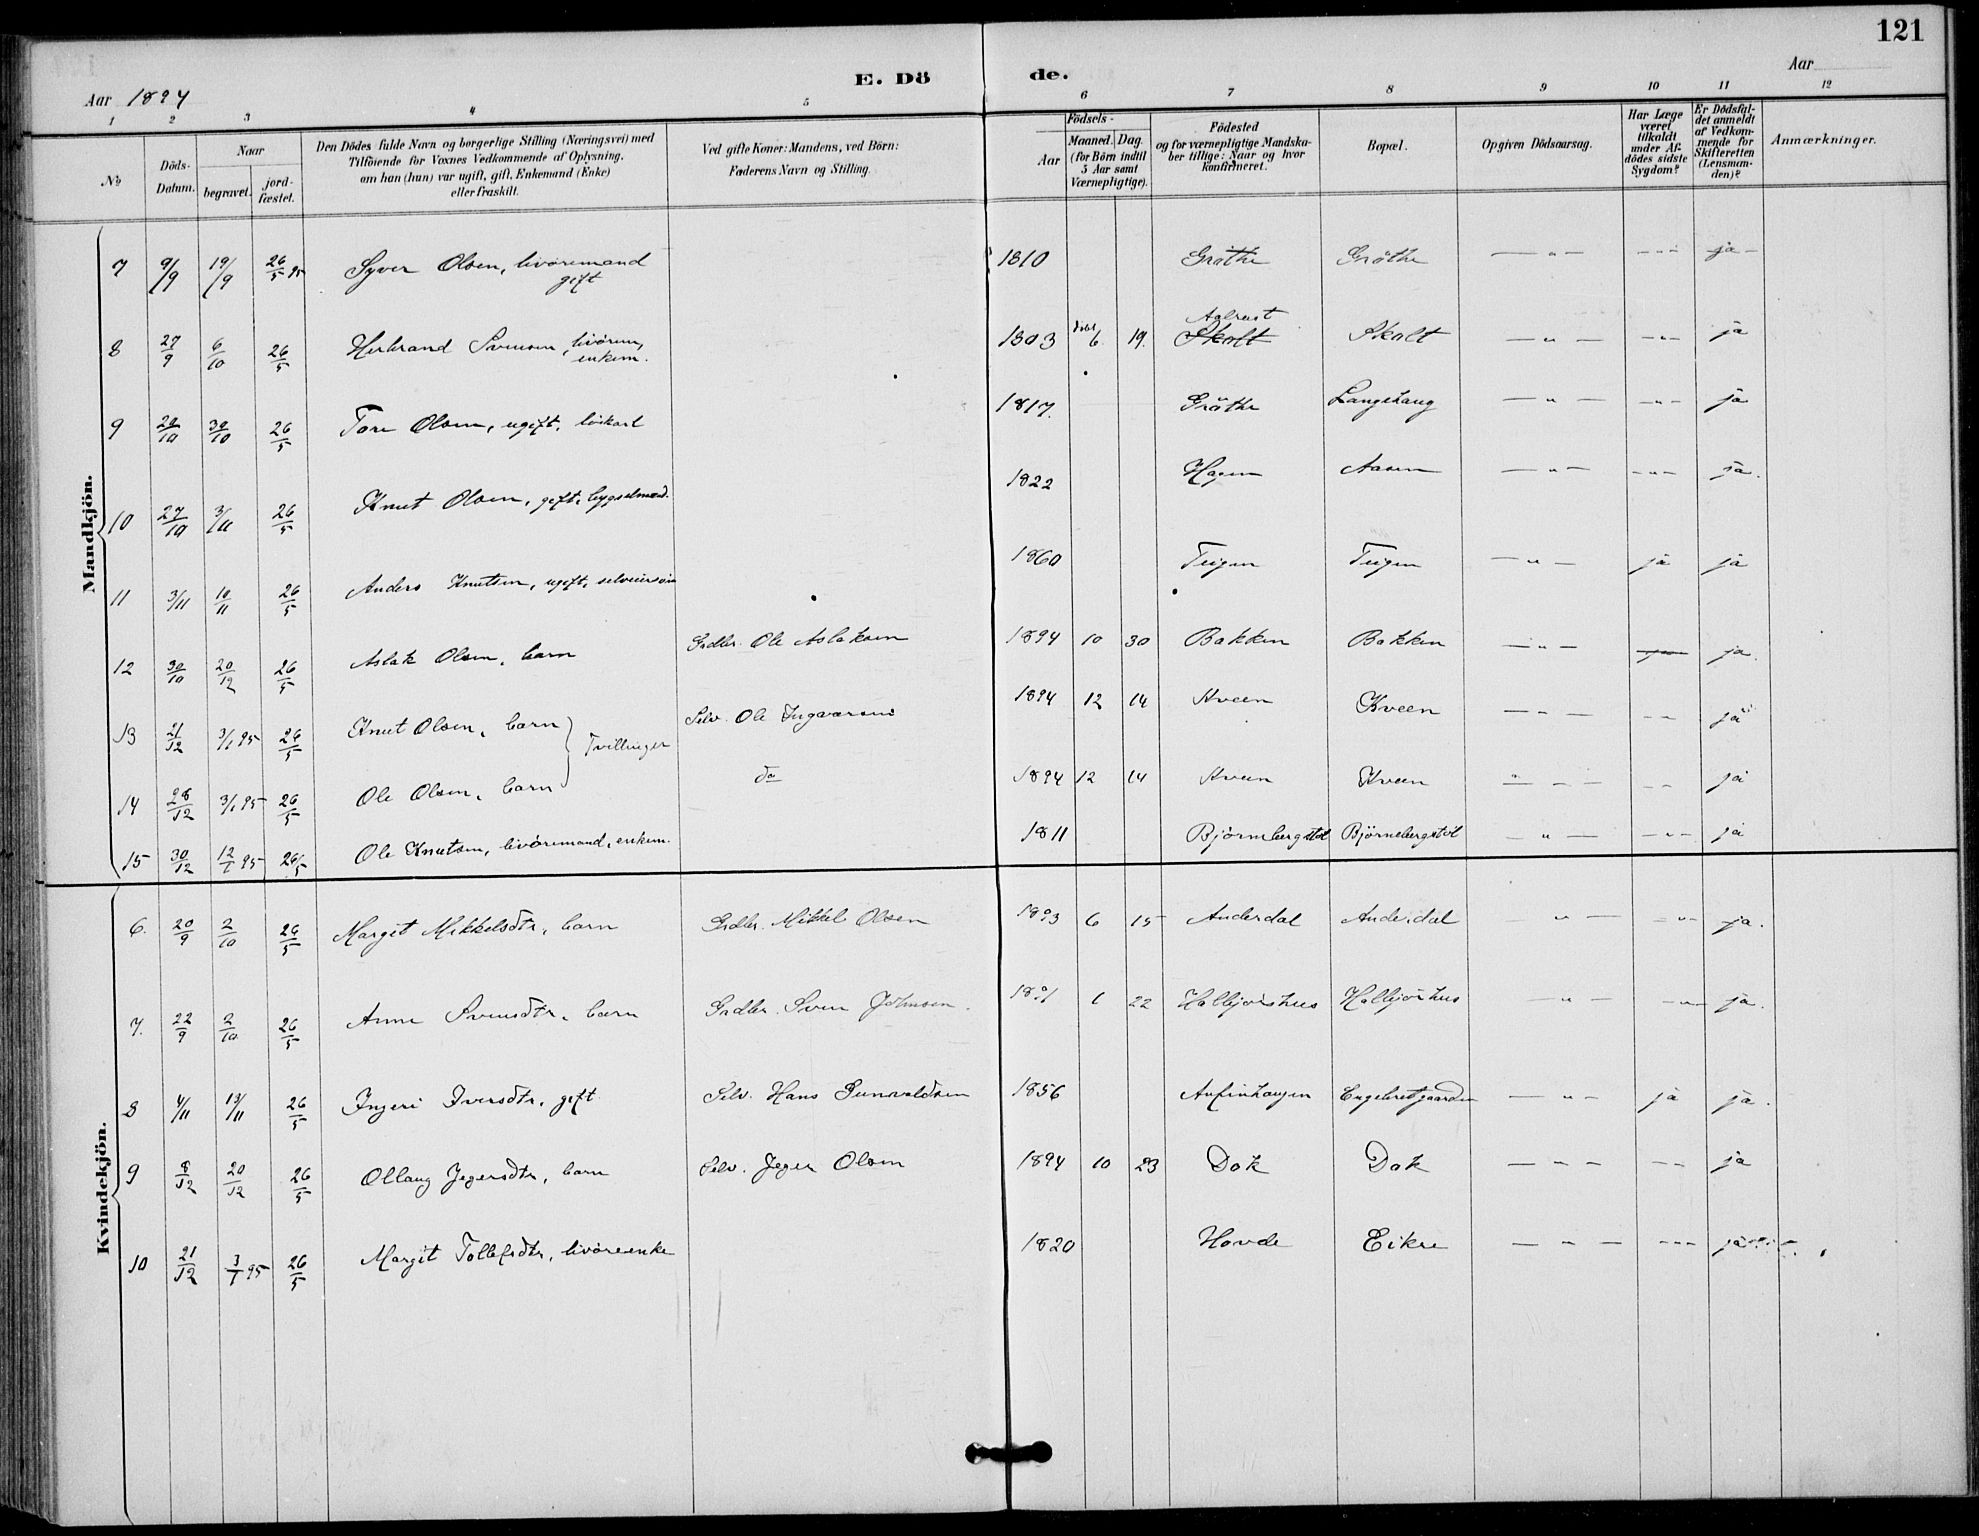 121
E. Dö de.
Aar 1894
Aar
1 2 3 4 5 6 7 8 9 10 11 12
No
Döds-Datum.
Naar
begravet.
jord-fæstet.
Den Dödes fulde Navn og borgerlige Stilling (Næringsvei) med
Tilföiende for Voxnes Vedkommende af Oplysning,
om han (hun) var ugift, gift, Enkemand (Enke)
eller fraskilt.
Ved gifte Koner: Mandens, ved Börn:
Faderens Navn og Stilling.
Födsels-
Aar
Maaned. Dag.
(for Börn indtil
5 Aar samt
Værnepligtige).
Födested
og for værnepligtige Mandska-
ber tillige: Naar og hvor
konfirmeret.
Bopæl.
Opgiven Dödsaarsag.
Har Læge
været
tilkaldt
under Af-
dödes sidste
Sygdom?
Er Dödsfal-
det anmeldt
af Vedkom-
mende for
Skifteretten
(Lensman-
den)?
Anmærkninger.
Mandkjön.
7 9/9 19/9 26/5 95 Syver Olsen, livöremand gift 1810 Gröthe Gröthe — " — — " — ja
8 27/9 6/10 26/5 Herbrand Svensen, livörem, enkem. 1803 döbt 6 19. Skolt Aalrust Skolt — " — — " — ja
9 26/10 30/10 26/5 Tore Olsen, ugift, löskarl 1817. Gröthe Langehaug — " — — " — ja
10 27/10 3/11 26/5 Knut Olsen, gift, bygselmand. 1822 Hagen Aasen — " — — " — ja.
11 3/11 10/11 26/5 Anders Knutsen, ugift, selveiersön 1860 Teigen Teigen — " — ja ja
12 30/10 20/12 26/5 Aslak Olsen, barn Grdbr. Ole Aslaksen 1894 10 30 Bakken Bakken — " — ja.
13 21/12 3/1 95 26/5 Knut Olsen, barn Tvillinger Selv. Ole Ingvarsen 1894 12 14 Kveen Kveen — " — — — ja
14 28/12 3/1 95 26/5 Ole Olsen, barn do 1894 12 14 Kveen Kveen — " — — — ja
15 30/12 12/1 95 26/5 Ole Knutsen, livöremand, enkem. 1811 Björnebergstöl Björnebergstöl — " — — " — ja
Kvindekjön.
6. 20/9 2/10 26/5 Margit Mikkelsdtr, barn Grdbr. Mikkel Olsen 1893 6 15 Anderdal Anderdal — " — — " — ja.
7. 22/9 2/10 26/5 Anne Svensdtr, barn Grdbr. Sven Johnsen 1891 1 22 Halbjörhus Halbjörhus — " — — " — ja.
8 4/11 13/11 26/5 Ingeri Iversdtr, gift Selv. Hans Gunvaldsen 1856 Anfinhaugen Engebretgaarden — " — ja ja.
9 8/12 20/12 26/5 Ollaug Jegersdtr, barn Selv. Jeger Olsen 1894 10 23 Dok Dok — " — — — ja
10 21/12 3/1 95 26/5 Margit Tollefsdtr, livöreenke 1820 Hovde Eikre — " — — " — ja